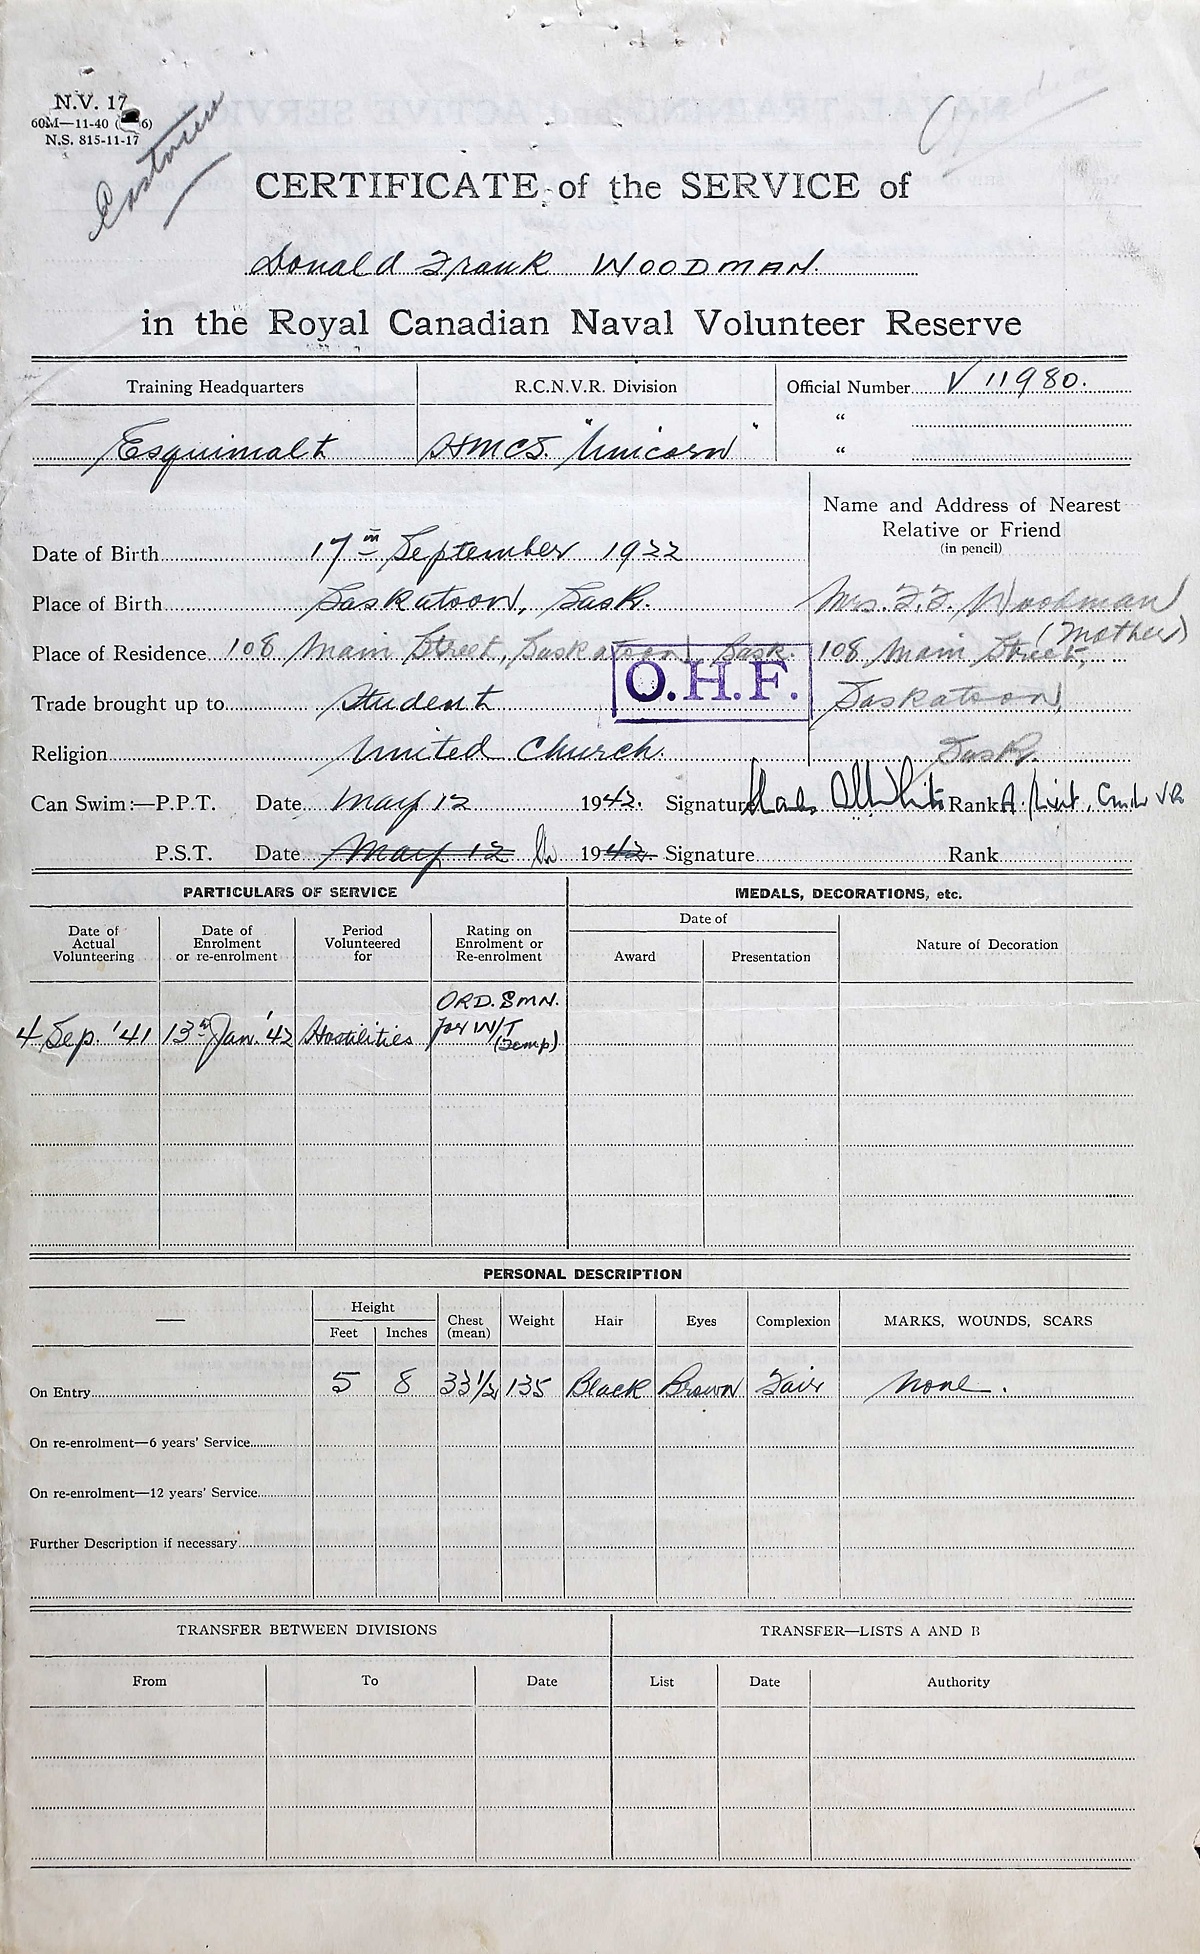 N.V. 17
60M—11-40 ( 6)
N.S. 815-11-17
CERTIFICATE of the SERVICE of
Donald Frank WOODMAN.
in the Royal Canadian Naval Volunteer Reserve
Training Headquarters R.C.N.V.R. Division Official Number V 11980.
“
Esquimalt HMCS. "Unicorn" “
Name and Address of Nearest
Relative or Friend
(in pencil)
Date of Birth 17th September 1922
Place of Birth Saskatoon, Sask. Mrs. F.F. Woodman
(Mother)
Place of Residence 108 Main Street, Saskatoon, Sask. 108 Main Street,
O.H.F.
Trade brought up to Student Saskatoon,
Religion United Church. Sask.
Can Swim:—P.P.T. Date May 12 1942. Signature White Rank A/Lieut. Cmdr VR
P.S.T. Date May 12 1942 Signature Rank
PARTICULARS OF SERVICE MEDALS, DECORATIONS, etc.
Date of Actual Volunteering Date of Enrolment or re-enrolment Period Volunteered for Rating on Enrolment or Re-enrolment Date of Nature of Decoration
Award Presentation
ORD. SMN.
4 Sep. '41 13th Jan. '42 Hostilities for W/T
(Temp)
PERSONAL DESCRIPTION
— Height Chest (mean) Weight Hair Eyes Complexion MARKS, WOUNDS, SCARS
Feet Inches
On Entry 5 8 33½ 135 Black Brown Fair None.
On re-enrolment—6 years' Service
On re-enrolment—12 years' Service
Further Description if necessary
TRANSFER BETWEEN DIVISIONS TRANSFER—LISTS A AND B
From To Date List Date Authority